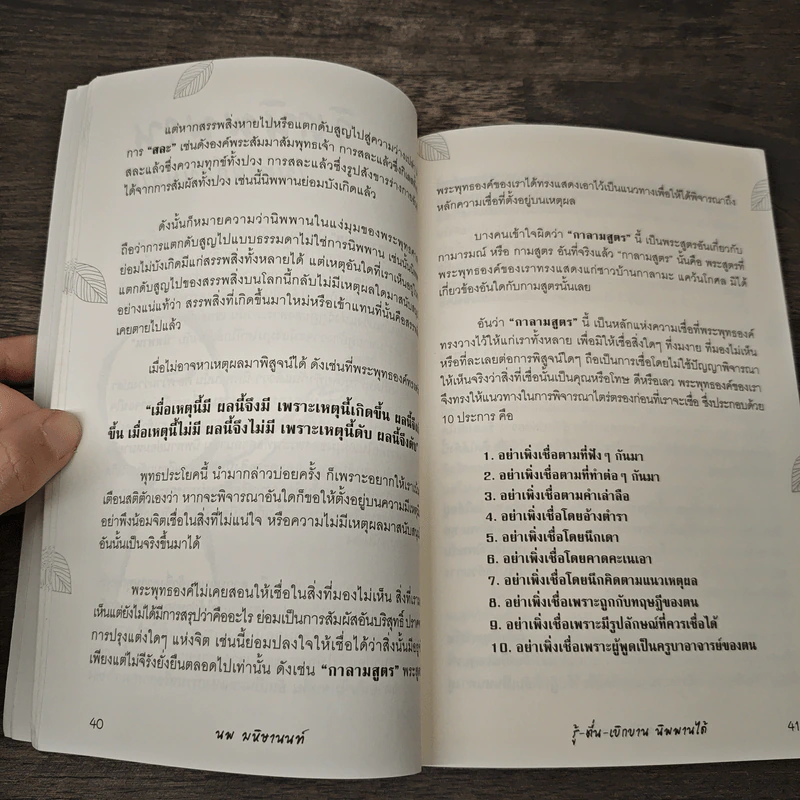 แต่หากสรรพสิ่งหายไปหรือแตกดับสูญไปสู่ความว่างเปล่า
การ “สละ” เช่นดังองค์พระสัมมาสัมพุทธเจ้า การสละแล้วซึ่ง
สละแล้วซึ่งความทุกข์ทั้งปวง การสละแล้วซึ่งรูปสังขารร่างกาย
ได้จากการสัมผัสทั้งปวง เช่นนี้นิพพานย่อมบังเกิดแล้ว
ดังนั้นก็หมายความว่านิพพานในแง่มุมของพระพุทธ
ถือว่าการแตกดับสูญไปแบบธรรมดาไม่ใช่การนิพพาน เช่นนั้น
ย่อมไม่บังเกิดมีแก่สรรพสิ่งทั้งหลายได้ แต่เหตุอันใดที่เราเห็น
แตกดับสูญไปของสรรพสิ่งบนโลกนี้กลับไม่มีเหตุผลใดมา
อย่างแน่แท้ว่า สรรพสิ่งที่เกิดขึ้นมาใหม่หรือเข้าแทนที่นั้นคือ
เคยตายไปแล้ว
เมื่อไม่อาจหาเหตุผลมาพิสูจน์ได้ ดังเช่นที่พระพุทธองค์
“เมื่อเหตุนี้มี ผลนี้จึงมี เพราะเหตุนี้เกิดขึ้น ผลนี้จึง
ขึ้น เมื่อเหตุนี้ไม่มี ผลนี้จึงไม่มี เพราะเหตุนี้ดับ ผลนี้จึงดับ”
พุทธประโยคนี้ นำมากล่าวบ่อยครั้ง ก็เพราะอยากให้เรา
เตือนสติตัวเองว่า หากจะพิจารณาอันใดก็ขอให้ตั้งอยู่บนความมี
อย่าพึงน้อมจิตเชื่อในสิ่งที่ไม่แน่ใจ หรือความไม่มีเหตุผลมา
อันนั้นเป็นจริงขึ้นมาได้
พระพุทธองค์ไม่เคยสอนให้เชื่อในสิ่งที่มองไม่เห็น สิ่งที่
เห็นแต่ยังไม่ได้มีการสรุปว่าคืออะไร ย่อมเป็นการสัมผัสอันบริสุทธิ์
การปรุงแต่งใดๆ แห่งจิต เช่นนี้ย่อมปลงใจให้เชื่อได้ว่าสิ่งนั้น
เพียงแต่ไม่จีรังยั่งยืนตลอดไปเท่านั้น ดังเช่น “กาลามสูตร”
40
นพ มนิษานนท์
พระพุทธองค์ของเราได้ทรงแสดงเอาไว้เป็นแนวทางเพื่อให้ได้พิจารณาถึง
หลักความเชื่อที่ตั้งอยู่บนเหตุผล
บางคนเข้าใจผิดว่า “กาลามสูตร” นี้ เป็นพระสูตรอันเกี่ยวกับ
กามารมณ์ หรือ กามสูตร อันที่จริงแล้ว “กาลามสูตร” นั้นคือ พระสูตรที่
พระพุทธองค์ของเราทรงแสดงแก่ชาวบ้านกาลามะ แคว้นโกศล มิได้
เกี่ยวข้องอันใดกับกามสูตรนั้นเลย
อันว่า “กาลามสูตร” นี้ เป็นหลักแห่งความเชื่อที่พระพุทธองค์
ทรงวางไว้ให้แก่เราทั้งหลาย เพื่อมิให้เชื่อสิ่งใดๆ ที่งมงาย ที่มองไม่เห็น
หรือที่ละเลยต่อการพิสูจน์ใดๆ ถือเป็นการเชื่อโดยไม่ใช้ปัญญาพิจารณา
ให้เห็นจริงว่าสิ่งที่เชื่อนั้นเป็นคุณหรือโทษ ดีหรือเลว พระพุทธองค์ของเรา
จึงทรงให้แนวทางในการพิจารณาไตร่ตรองก่อนที่เราจะเชื่อ ซึ่งประกอบด้วย
10 ประการ คือ
1. อย่าเพิ่งเชื่อตามที่ฟังๆ กันมา
2. อย่าเพิ่งเชื่อตามที่ทำต่อๆ กันมา
3. อย่าเพิ่งเชื่อตามคำเล่าลือ
4. อย่าเพิ่งเชื่อโดยอ้างตำรา
5. อย่าเพิ่งเชื่อโดยนึกเดา
6. อย่าเพิ่งเชื่อโดยคาดคะเนเอา
7. อย่าเพิ่งเชื่อโดยนึกคิดตามแนวเหตุผล
8. อย่าเพิ่งเชื่อเพราะถูกกับทฤษฎีของตน
9. อย่าเพิ่งเชื่อเพราะมีรูปลักษณ์ที่ควรเชื่อได้
10. อย่าเพิ่งเชื่อเพราะผู้พูดเป็นครูบาอาจารย์ของตน
รู้-ตื่น-เบิกบาน นิพพานได้
41